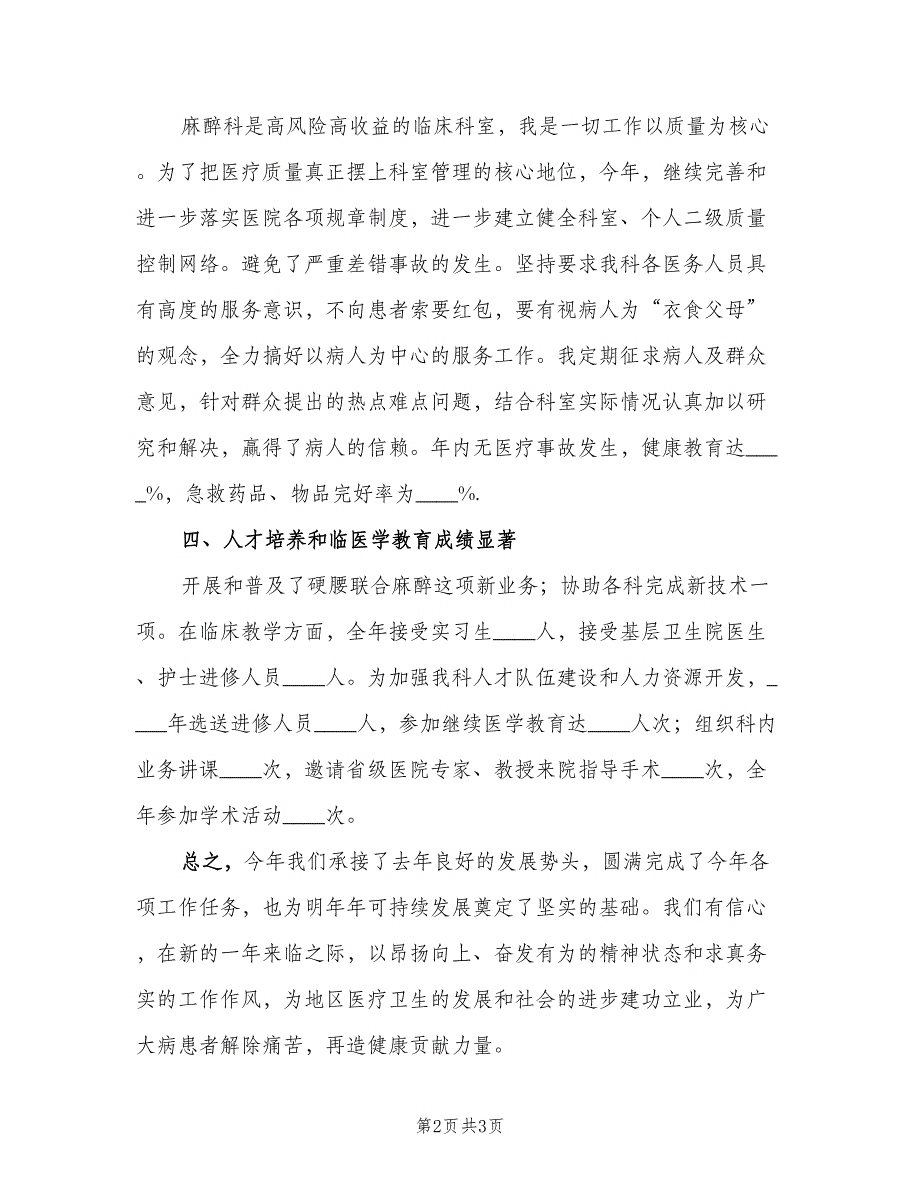 麻醉科是高风险高收益的临床科室，我是一切工作以质量为核心
。为了把医疗质量真正摆上科室管理的核心地位，今年，继续完善和
进一步落实医院各项规章制度，进一步建立健全科室、个人二级质量
控制网络。避免了严重差错事故的发生。坚持要求我科各医务人员具
有高度的服务意识，不向患者索要红包，要有视病人为“衣食父母”
的观念，全力搞好以病人为中心的服务工作。我定期征求病人及群众
意见，针对群众提出的热点难点问题，结合科室实际情况认真加以研
究和解决，赢得了病人的信赖。年内无医疗事故发生，健康教育达___
_%，急救药品、物品完好率为____%.
四、人才培养和临医学教育成绩显著
开展和普及了硬腰联合麻醉这项新业务；协助各科完成新技术一
项。在临床教学方面，全年接受实习生____人，接受基层卫生院医生
、护士进修人员____人。为加强我科人才队伍建设和人力资源开发，_
___年选送进修人员____人，参加继续医学教育达____人次；组织科内
业务讲课____次，邀请省级医院专家、教授来院指导手术____次，全
年参加学术活动____次。
总之，今年我们承接了去年良好的发展势头，圆满完成了今年各
项工作任务，也为明年年可持续发展奠定了坚实的基础。我们有信心
，在新的一年来临之际，以昂扬向上、奋发有为的精神状态和求真务
实的工作作风，为地区医疗卫生的发展和社会的进步建功立业，为广
大病患者解除痛苦，再造健康贡献力量。
第2页 共3页